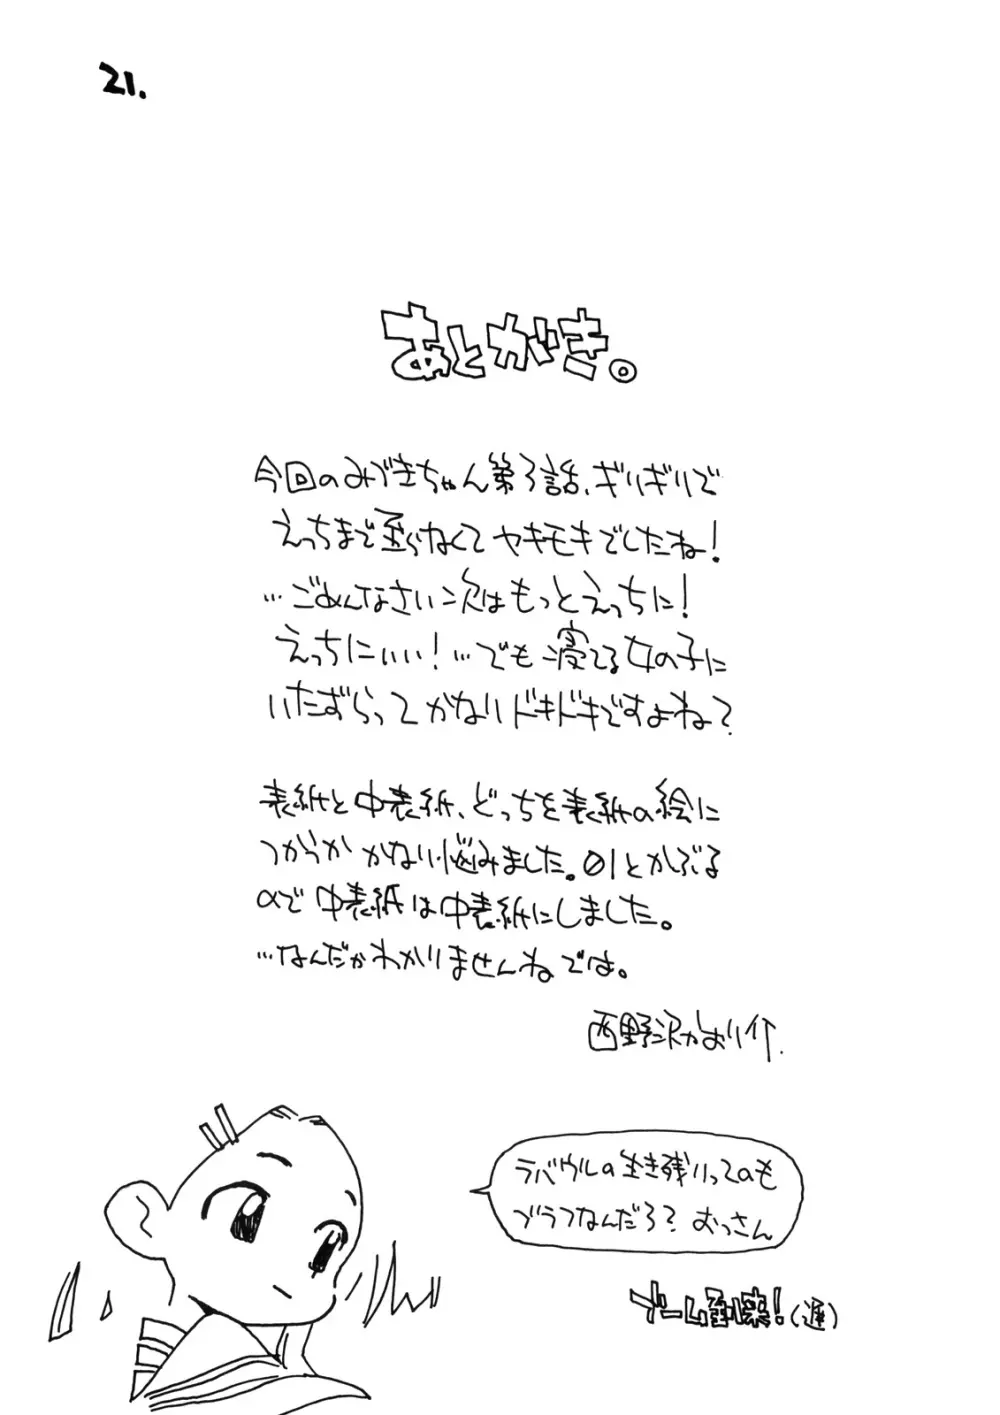 21.
あとがき。
今回のみづきちゃん第3話、ギリギリで
えっちまで至らなくてヤキモキでしたね!
…ごめんなさい次はもっとえっちに!
えっちにぃぃ!…でも寝てる女の子に
いたずらってかなりドキドキですよね?
表紙と中表紙、どっちを表紙の絵に
つかうか かなり悩みました。01とかぶる
ので中表紙は中表紙にしました。
…なんだかわかりませんねでは。
西野沢かおり介.
ラバウルの生き残りってのも
ブラフなんだろ? おっさん
ブーム到来!(遅)